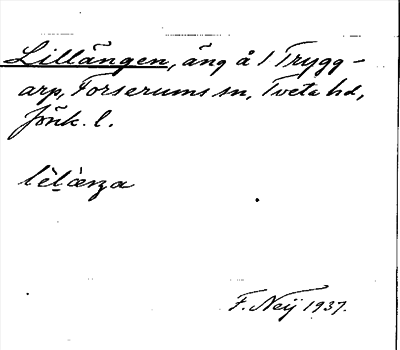 Lillängen, äng å 1 Trygg-
arp, Forserums sn, Tveta hd,
Jönk. l.
F. Neij 1937.